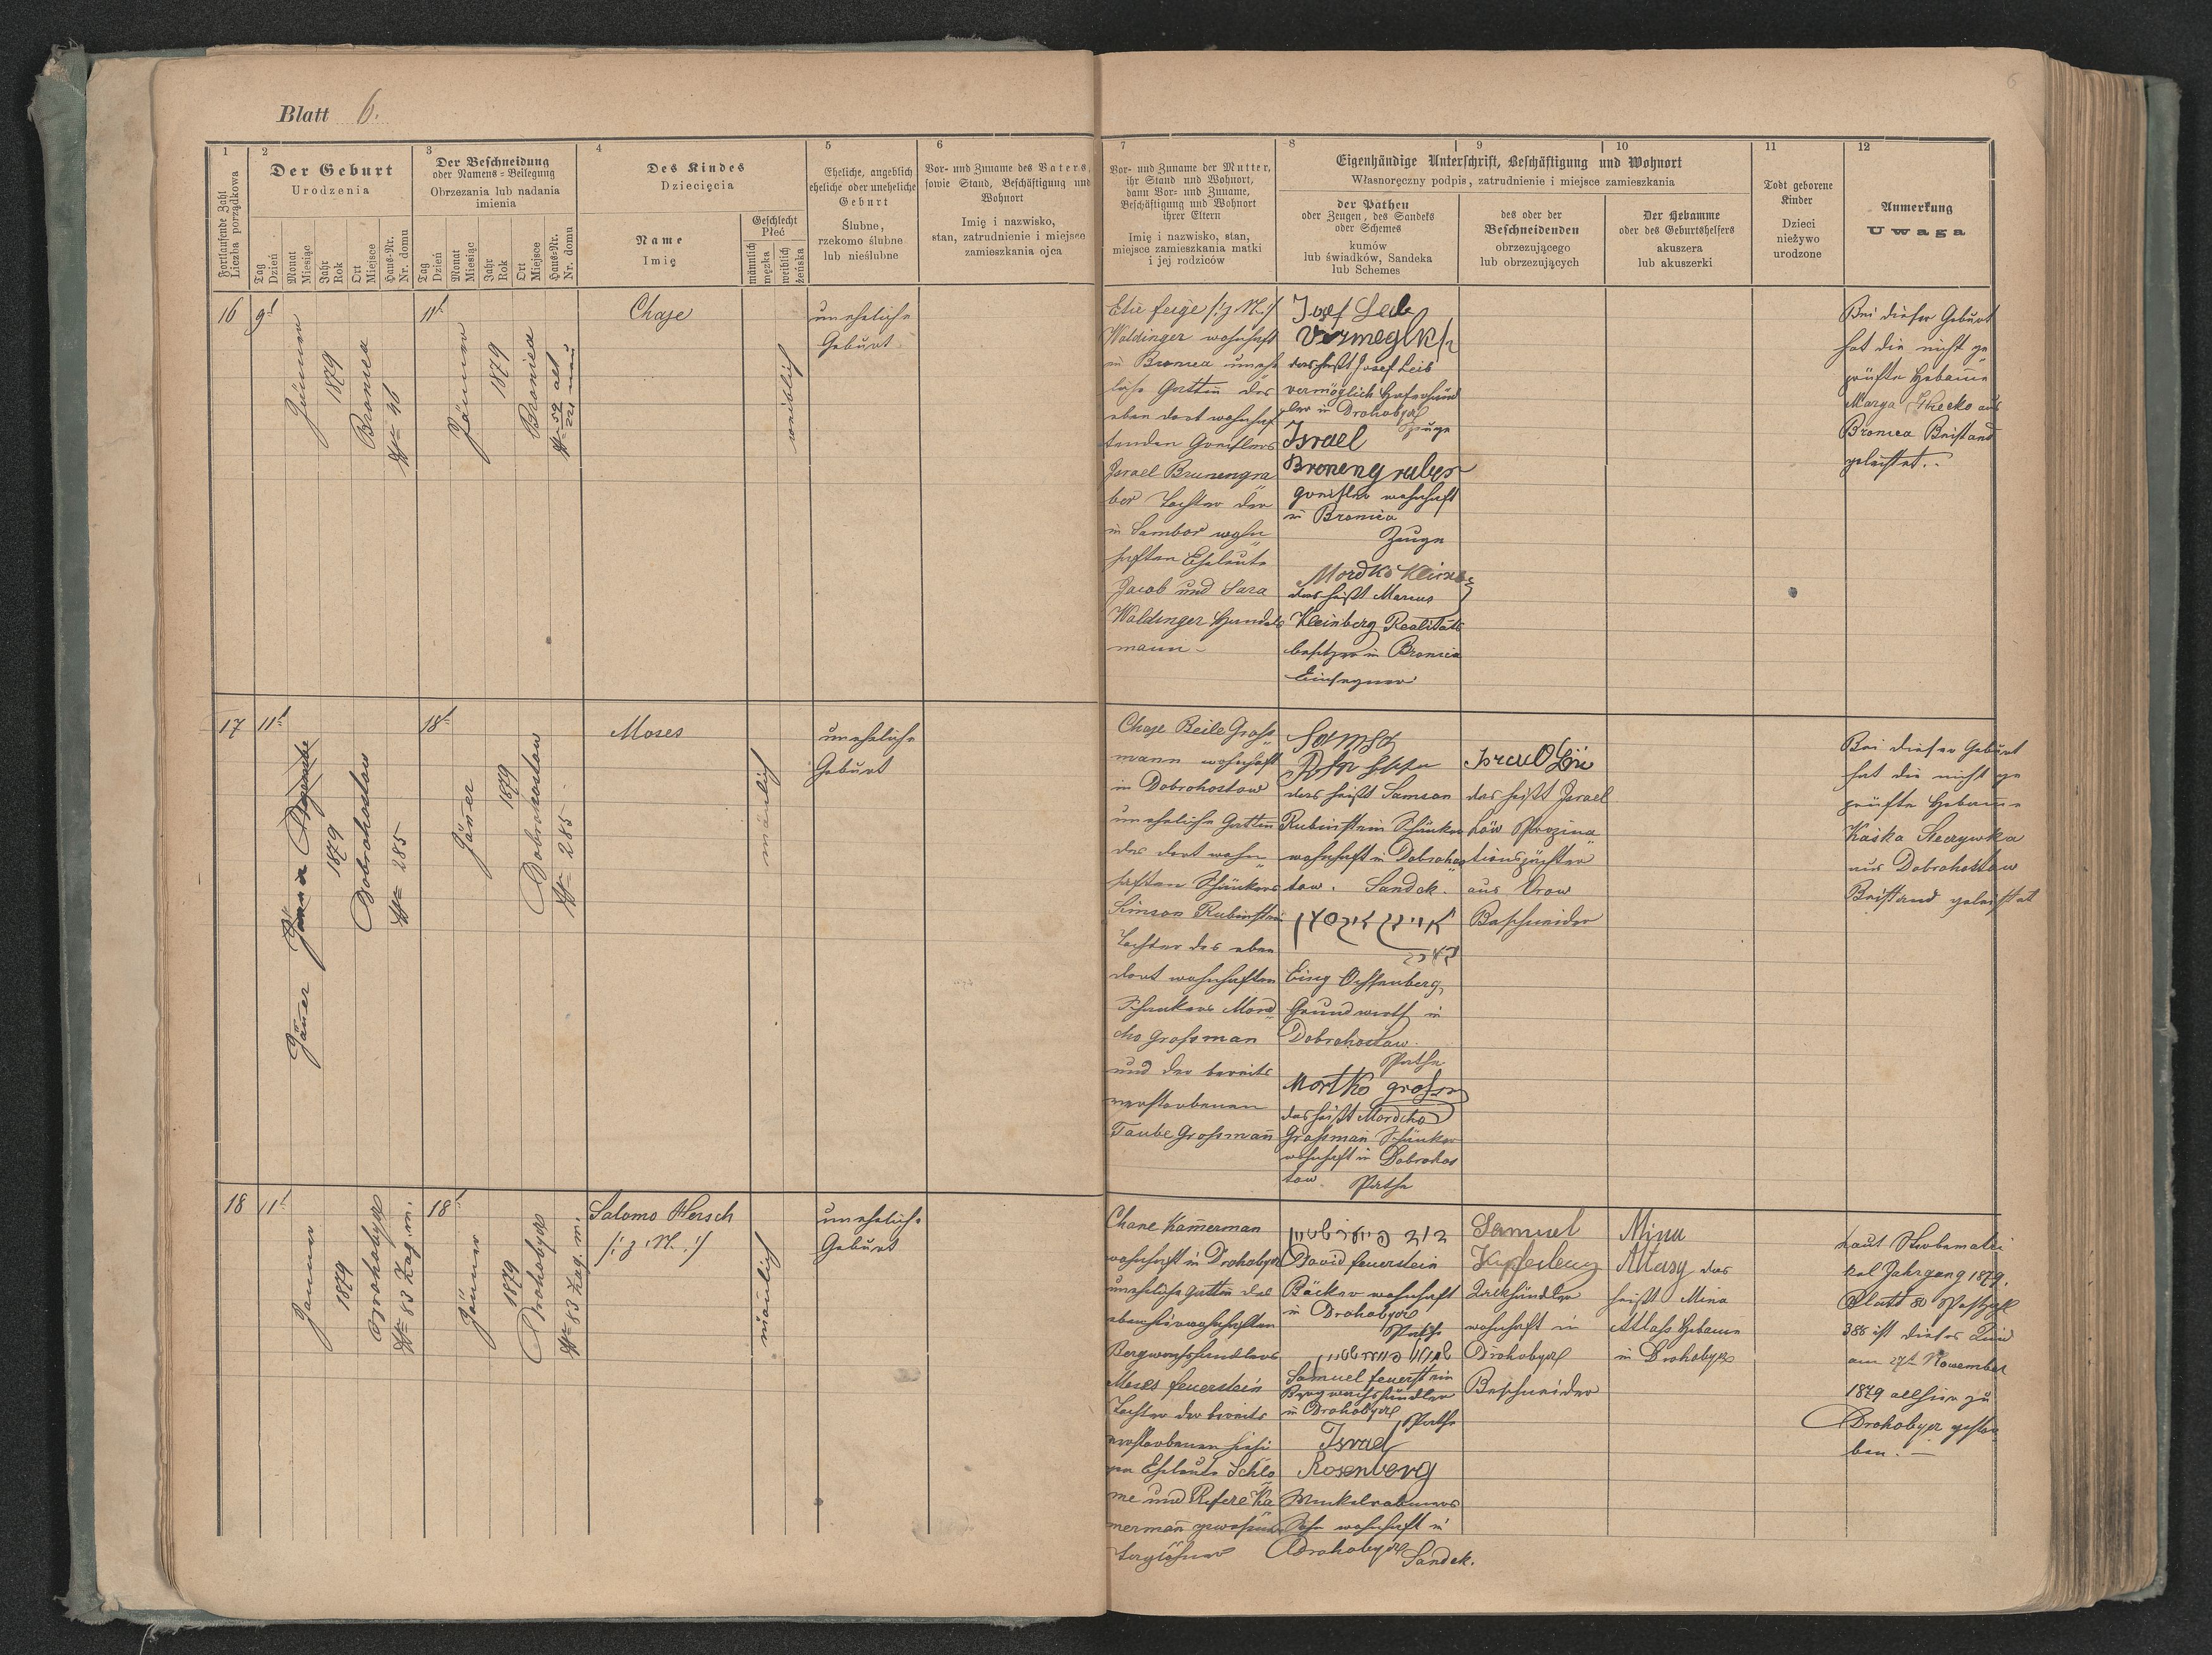 Blatt 6.
6
1
Fortlaufende Zahl
Liczba porządkowa
2
Der Geburt
Urodzenia
Tag
Dzień
Monat
Miesiąc
Jahr
Rok
Ort
Miejsce
Haus-Nr.
Nr. domu
3
Der Beschneidung
oder Namens-Beilegung
Obrzezania lub nadania
imienia
Tag
Dzień
Monat
Miesiąc
Jahr
Rok
Ort
Miejsce
Haus-Nr.
Nr. domu
4
Des Kindes
Dziecięcia
Name
Imię
Geschlecht
Płeć
männlich
męzka
weiblich
żeńska
5
Eheliche, angeblich
eheliche oder uneheliche
Geburt
Ślubne,
rzekomo ślubne
lub nieślubne
6
Vor- und Zuname des Vaters,
sowie Stand, Beschäftigung und
Wohnort
Imię i nazwisko,
stan, zatrudnienie i miejsce
zamieszkania ojca
7
Vor- und Zuname der Mutter,
ihr Stand und Wohnort,
dann Vor- und Zuname,
Beschäftigung und Wohnort
ihrer Eltern
Imię i nazwisko, stan,
miejsce zamieszkania matki
i jej rodziców
Eigenhändige Unterschrift, Beschäftigung und Wohnort
Własnoręczny podpis, zatrudnienie i miejsce zamieszkania
8
der Pathen
oder Zeugen, des Sandeks
oder Schemes
kumów
lub świadków, Sandeka
lub Schemes
9
des oder der
Beschneidenden
obrzezującego
lub obrzezujących
10
Der Hebamme
oder des Geburtshelfers
akuszera
lub akuszerki
11
Todt geborene
Kinder
Dzieci
nieżywo
urodzone
12
Anmerkung
Uwaga
16
9t
Jänner
1879
Bronica
Nr 46
11t
Jänner
1879
Bronica
Nr 52 alt
221 neu
Chaje
weiblich
uneheliche
Geburt
Etie feige /:z. N:/
Waldinger wohnhaft
in Bronica unehe
liche Gattin des
eben dort wohnhaf
tenden Greislers
Israel Brunengra
ber Tochter der
in Sambor wohn
haften Eheleute
Jacob und Sara
Waldinger Handels
mann
Josef Leib
Virmeglich
das heißt Josef Leib
vermöglich Haferhänd
ler in Drohobycz
Zeuge
Israel
Bronengraber
Greisler wohnhaft
in Bronica
Zeuge
Mordko Kleinb
das heißt Marcus
Kleinberg Realitäts
besitzer in Bronica
Einsegner
Bei dieser Geburt
hat die nicht ge
prüfte Hebamme
Marya aus
Bronica Beistand
geleistet.
17
11t
Jänner
1879
Dobrohostow
Nr 285
18t
Jänner
1879
Dobrohostow
Nr 285
Moses
männlich
uneheliche
Geburt
Chaje Beile Groß
mann wohnhaft
in Dobrohostow
uneheliche Gattin
des dort wohn
haften Schänkers
Simson Rubinstein
Tochter des eben
dort wohnhaften
Schankers Mord
cho Großman
und der bereits
verstorbenen
Taube Großmañ
Samson
das heißt Samson
Rubinstein Schänker
wohnhaft in Dobrohos
tow. Sandek.
Eisig Ochsenberg
Grundwirth in
Dobrohostow.
Pathe
Mortko grosm
das heißt Mordcho
Grossman Schänker
wohnhaft in Dobrohos
tow. Pathe
Israel Löw
das heißt Israel
Löw Propina
tionspächter
aus Urow
Beschneider
Bei dieser Geburt
hat die nicht ge
prüfte Hebamme
Kaska
aus Dobrohostow
Beistand geleistet
18
11t
Janner
1879
Drohobycz
Nr 83 Zag. m.
18t
Jänner
1879
Drohobycz
Nr 83 Zag. m.
Salomo Hersch
/:z. N.:/
männlich
uneheliche
Geburt
Chane Kam̄erman
wohnhaft in Drohobycz
uneheliche Gattin des
ebenhierwohnhaften
Bergwachshändlers
Moses feuerstein
Tochter der bereits
verstorbenen hiesi
gen Eheleute Schlo
me und Refere Ka
mermañ gewesener
Taglöhner
דוד פייערשטיין
David feuerstein
Bäcker wohnhaft
in Drohobycz
Pathe
Samuel feuerstein
Bergwachshändler
in Drohobycz
Pathe
Israel
Rosenberg
Winkelrabiners
Sohn wohnhaft in
Drohobycz Sandek.
Samuel
Kupferberg
wohnhaft in
Drohobycz
Beschneider
Mina
Atlasz das
heißt Mina
Atlaß Hebame
in Drohobycz
Laut Sterbematri
kel Jahrgang 1879,
Blatt 80 Postzahl
386 ist dieses Kind
am 27t November
1879 allhier zu
Drohobycz gestor
ben.